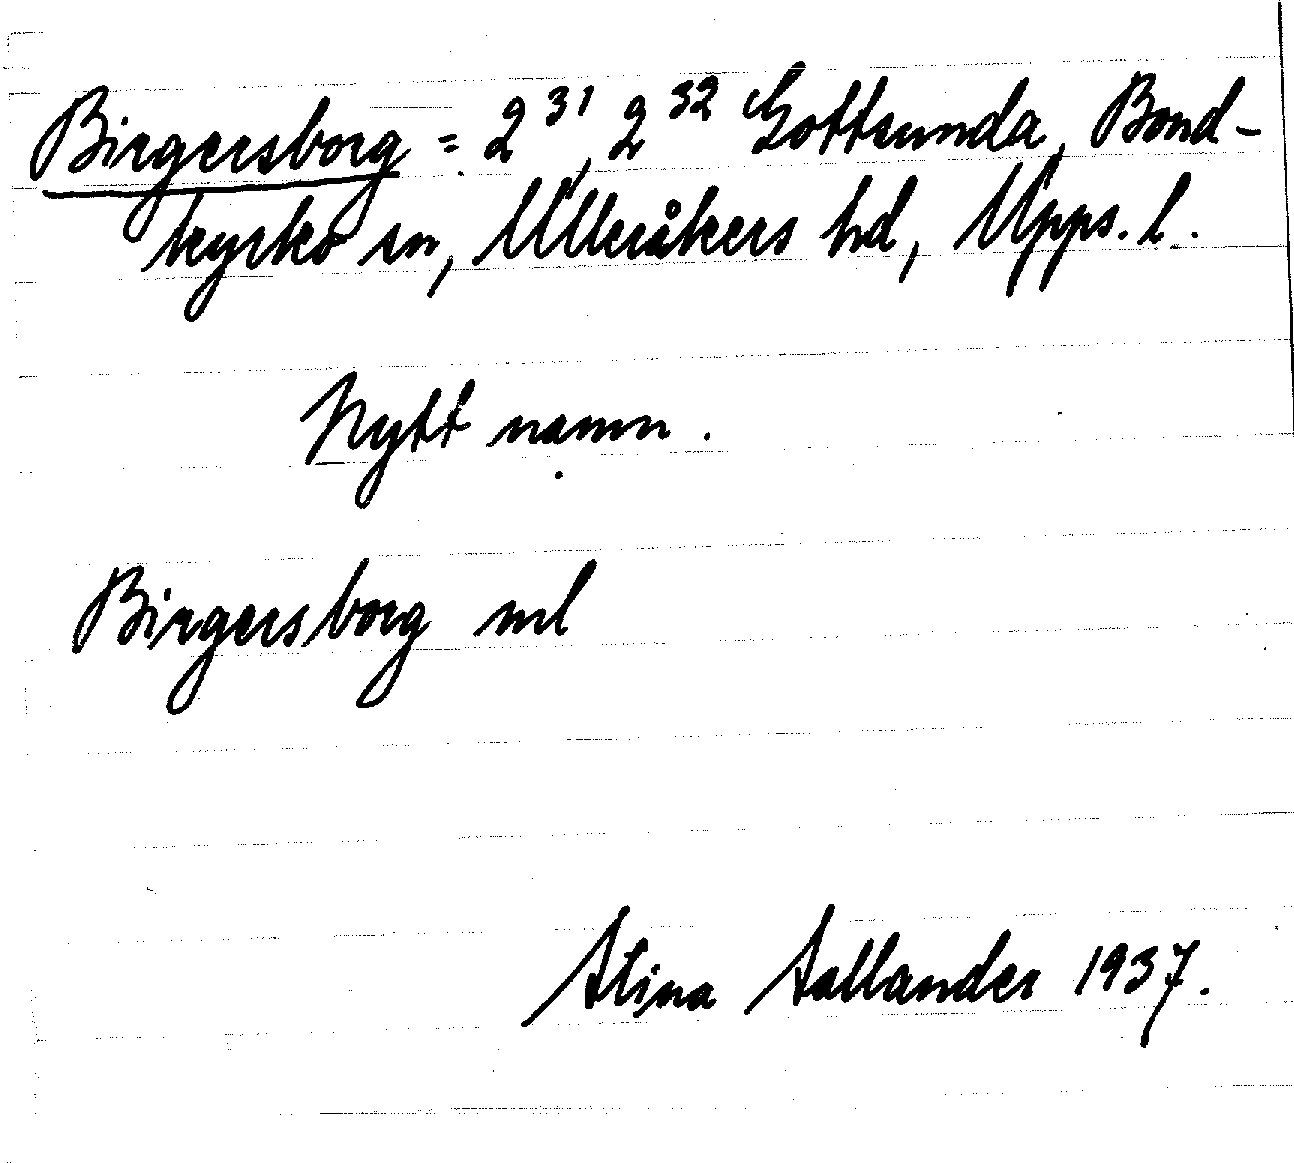 Birgersborg = 2³¹, 2³² Gottsunda, Bond-
kyrko sn, Ulleråkers hd, Upps. l.
Nytt namn.
Birgersborg ml
Stina Sallander 1937.